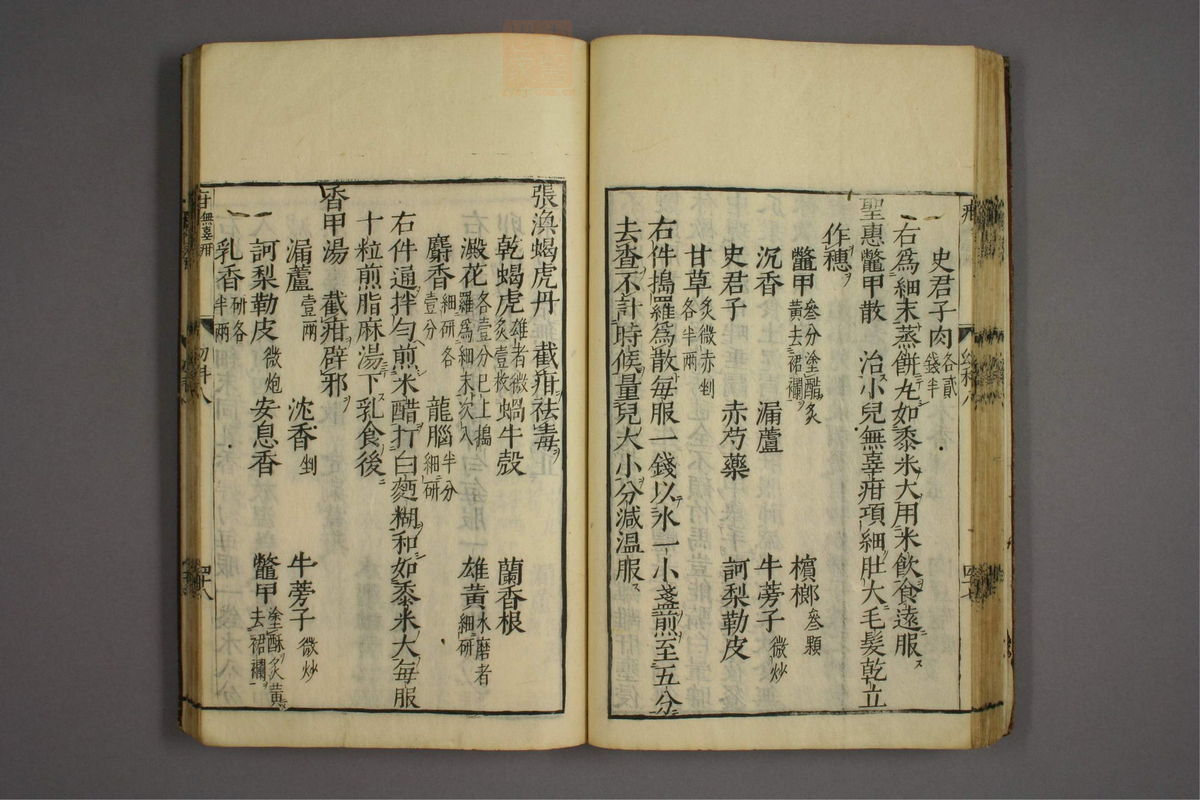 史君子肉各貳錢半
一右爲細末蒸餅丸如黍米大用米飲食遠服ス
聖惠鼈甲散 治小兒無辜疳項細肚大毛髮乾立
作穗ヲ
鼈甲叄分塗醋炙黃去裙襴 檳榔叄顆
沉香 漏蘆 牛蒡子微炒
史君子 赤芍藥 訶梨勒皮
甘草炙微赤剉各半兩
右件搗羅爲散每服一錢以水一小盞煎至五分
去查不計時候量兒大小分減溫服ス
張渙蝎虎丹 截疳祛毒
乾蝎虎雄者微炙壹枚 蝸牛殼 蘭香根
澱花各壹分巴上搗羅爲細末次入 雄黃水磨者細研
麝香細研各壹分 龍腦半分細研
右件通拌勻煎米醋打白麪糊和如黍米大每服
十粒煎脂麻湯下乳食後
香甲湯 截疳辟邪
漏蘆壹兩 沈香剉 牛蒡子微炒
一訶梨勒皮微炮 安息香 鼈甲塗酥炙黃去裙襴
一乳香研各半兩
疳 無辜疳 幼科八 四十八